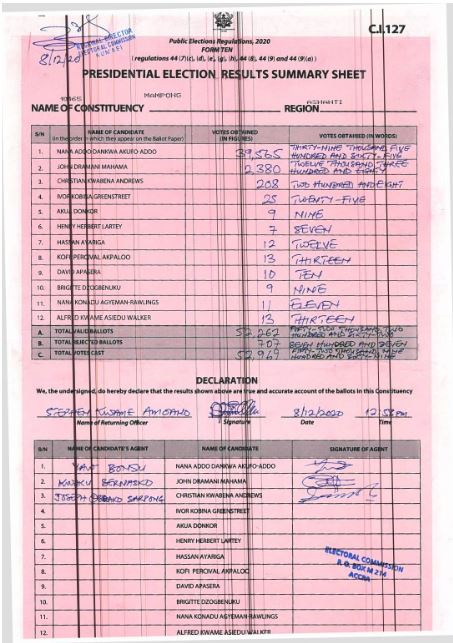 C.I.127
REGIONAL DIRECTOR
ELECTORAL COMMISSION
KUMASI
8/12/2020
Public Elections Regulations, 2020
FORM TEN
(regulations 44 (7)(c), (d), (e), (g), (h), 44 (8), 44 (9) and 44 (9)(a))
PRESIDENTIAL ELECTION RESULTS SUMMARY SHEET
MAMPONG ASHANTI
NAME OF CONSTITUENCY REGION
S/N NAME OF CANDIDATE (In the order in which they appear on the Ballot Paper) VOTES OBTAINED (IN FIGURES) VOTES OBTAINED (IN WORDS)
1. NANA ADDO DANKWA AKUFO ADDO 39,565 THIRTY-NINE THOUSAND FIVE HUNDRED AND SIXTY-FIVE
2. JOHN DRAMANI MAHAMA 12,380 TWELVE THOUSAND THREE HUNDRED AND EIGHTY
3. CHRISTIAN KWABENA ANDREWS 208 TWO HUNDRED AND EIGHT
4. IVOR KOBINA GREENSTREET 25 TWENTY-FIVE
5. AKUA DONKOR 9 NINE
6. HENRY HERBERT LARTEY 7 SEVEN
7. HASSAN AYARIGA 12 TWELVE
8. KOFI PERCIVAL AKPALOO 13 THIRTEEN
9. DAVID APASERA 10 TEN
10. BRIGITTE DZOGBENUKU 9 NINE
11. NANA KONADU AGYEMAN-RAWLINGS 11 ELEVEN
12. ALFRED KWAME ASIEDU WALKER 13 THIRTEEN
A. TOTAL VALID BALLOTS 52,262 FIFTY-TWO THOUSAND, TWO HUNDRED AND SIXTY-TWO
B. TOTAL REJECTED BALLOTS 707 SEVEN HUNDRED AND SEVEN
C. TOTAL VOTES CAST 52,969 FIFTY-TWO THOUSAND NINE HUNDRED AND SIXTY-NINE
DECLARATION
We, the undersigned, do hereby declare that the results shown above are true and accurate account of the ballots in this Constituency
STEPHEN KWAME 8/12/2020 12:58PM
Name of Returning Officer Signature Date Time
S/N NAME OF CANDIDATE'S AGENT NAME OF CANDIDATE SIGNATURE OF AGENT
1. YAW BONSU NANA ADDO DANKWA AKUFO-ADDO
2. KWAKU BERNASKO JOHN DRAMANI MAHAMA
3. JOSEPH SARPONG CHRISTIAN KWABENA ANDREWS
4. IVOR KOBINA GREENSTREET
5. AKUA DONKOR
6. HENRY HERBERT LARTEY
7. HASSAN AYARIGA
8. KOFI PERCIVAL AKPALOO
9. DAVID APASERA
10. BRIGITTE DZOGBENUKU
11. NANA KONADU AGYEMAN-RAWLINGS
12. ALFRED KWAME ASIEDU WALKER
ELECTORAL COMMISSION
P. O. BOX M 214
ACCRA